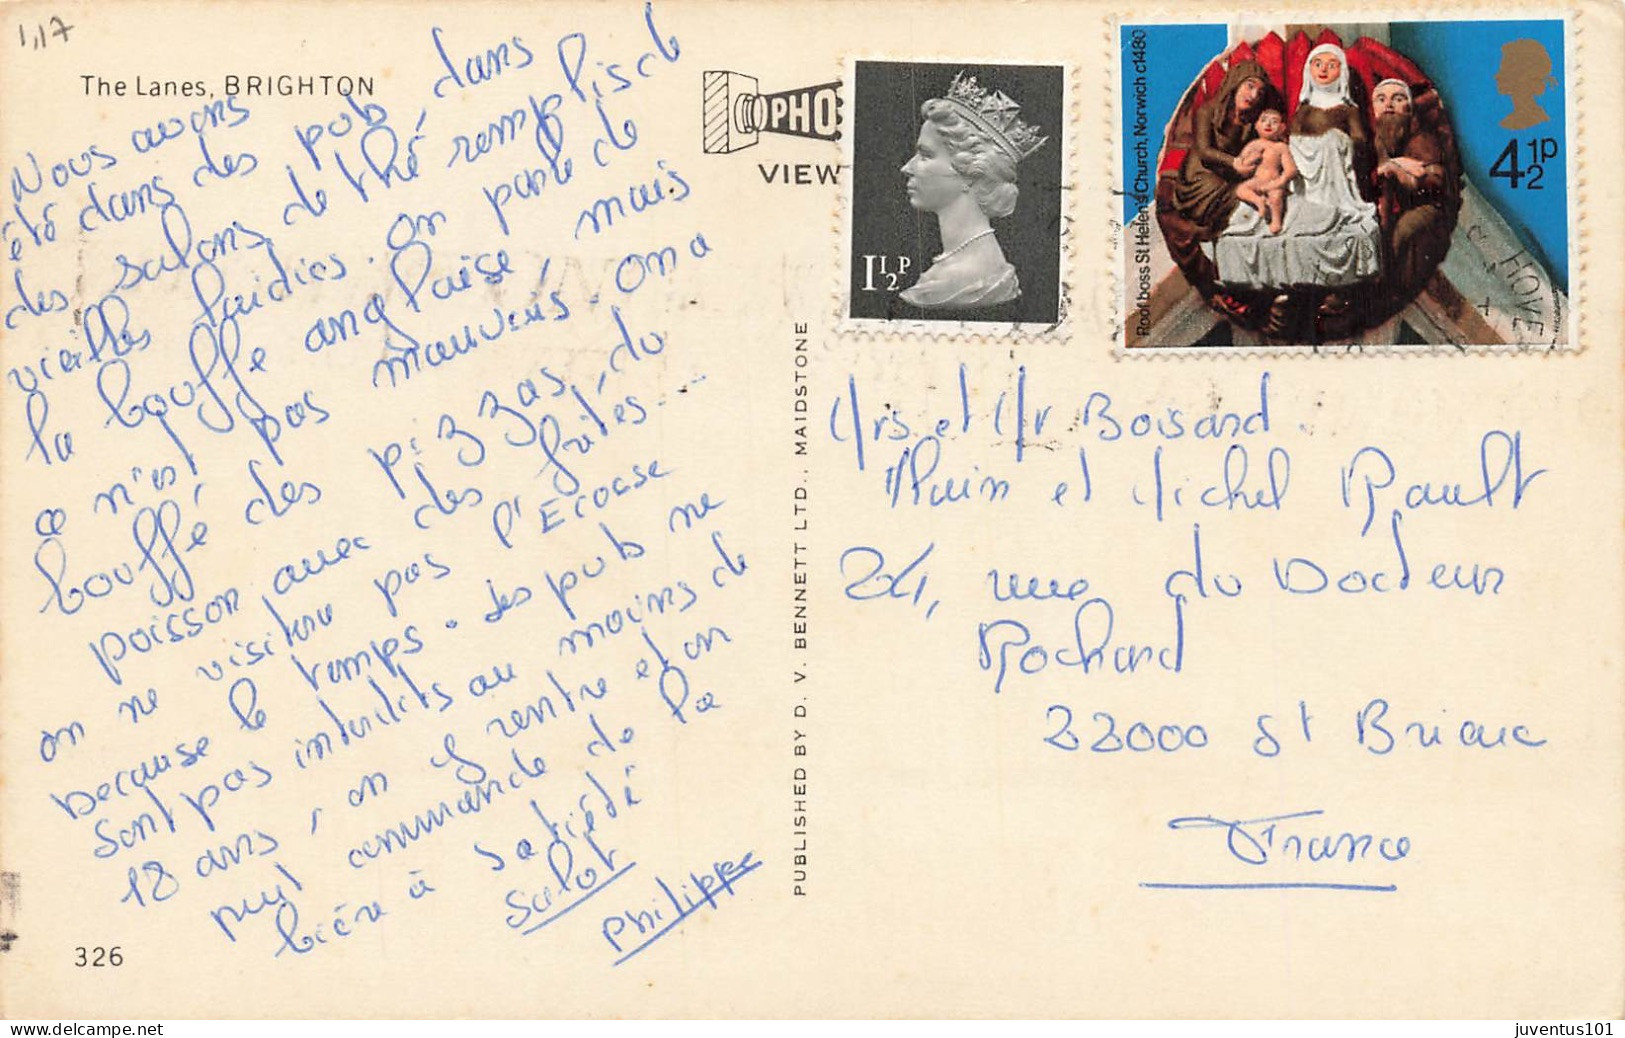 1,17
The Lanes, BRIGHTON
Nous avons
été dans des pub, dans
des salons de thé remplis de
vieilles ladies. on parle de
la bouffe anglaise, mais
ce n'est pas mauvais. on a
bouffé des pizzas, du
poisson avec des frites...
on ne visitera pas l'Ecosse
because le temps. Les pubs ne
sont pas interdits au moins de
18 ans, on y rentre et on
peut commande de la
bière à satiété
Salut
Philippe
326
PUBLISHED BY D. V. BENNETT LTD., MAIDSTONE
PHO
VIEW
1 1/2 P
Roof boss St Helen's Church, Norwich c1480
4 1/2 P
HOVE
Mrs et Mr Boisard
et Michel Rault
24, rue du Docteur
Rochard
22000 St Brieuc
France
juventus101